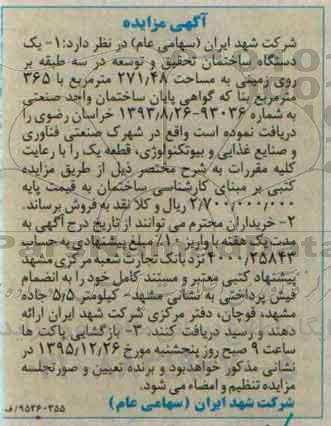 آگهی مزایده
شرکت شهد ایران (سهامی عام) در نظر دارد: ۱- یک
دستگاه ساختمان تحقیق و توسعه در سه طبقه بر
روی زمینی به مساحت ۲۷۱٫۴۸ مترمربع با ۳۶۵
مترمربع بنا که گواهی پایان ساختمان واحد صنعتی
به شماره ۹۳۰۳۶-۱۳۹۳/۸/۲۶ خراسان رضوی را
دریافت نموده است واقع در شهرک صنعتی فناوری
و صنایع غذایی و بیوتکنولوژی، قطعه یک را با رعایت
کلیه مقررات به شرح مختصر ذیل از طریق مزایده
کتبی بر مبنای کارشناسی ساختمان به قیمت پایه
۲/۷۰۰/۰۰۰/۰۰۰ ریال و کلا نقد به فروش برساند.
۲- خریداران محترم می توانند از تاریخ درج آگهی به
مدت یک هفته با واریز ۱۰٪ مبلغ پیشنهادی به حساب
۴۰۰۰/۲۵۸۴۳ نزد بانک تجارت شعبه مرکزی مشهد
پیشنهاد کتبی معتبر و مستند کامل خود را به انضمام
فیش پرداختی به نشانی مشهد- کیلومتر ۵/۵ جاده
مشهد، قوچان، دفتر مرکزی شرکت شهد ایران ارائه
دهند و رسید دریافت کنند. ۳- بازگشایی پاکت ها
ساعت ۹ صبح روز پنجشنبه مورخ ۱۳۹۵/۱۲/۲۶ در
نشانی مذکور خواهدبود و برنده تعیین و صورتجلسه
مزایده تنظیم و امضاء می شود.
شرکت شهد ایران (سهامی عام)
۹۵۲۶۰۳۵۵/ف